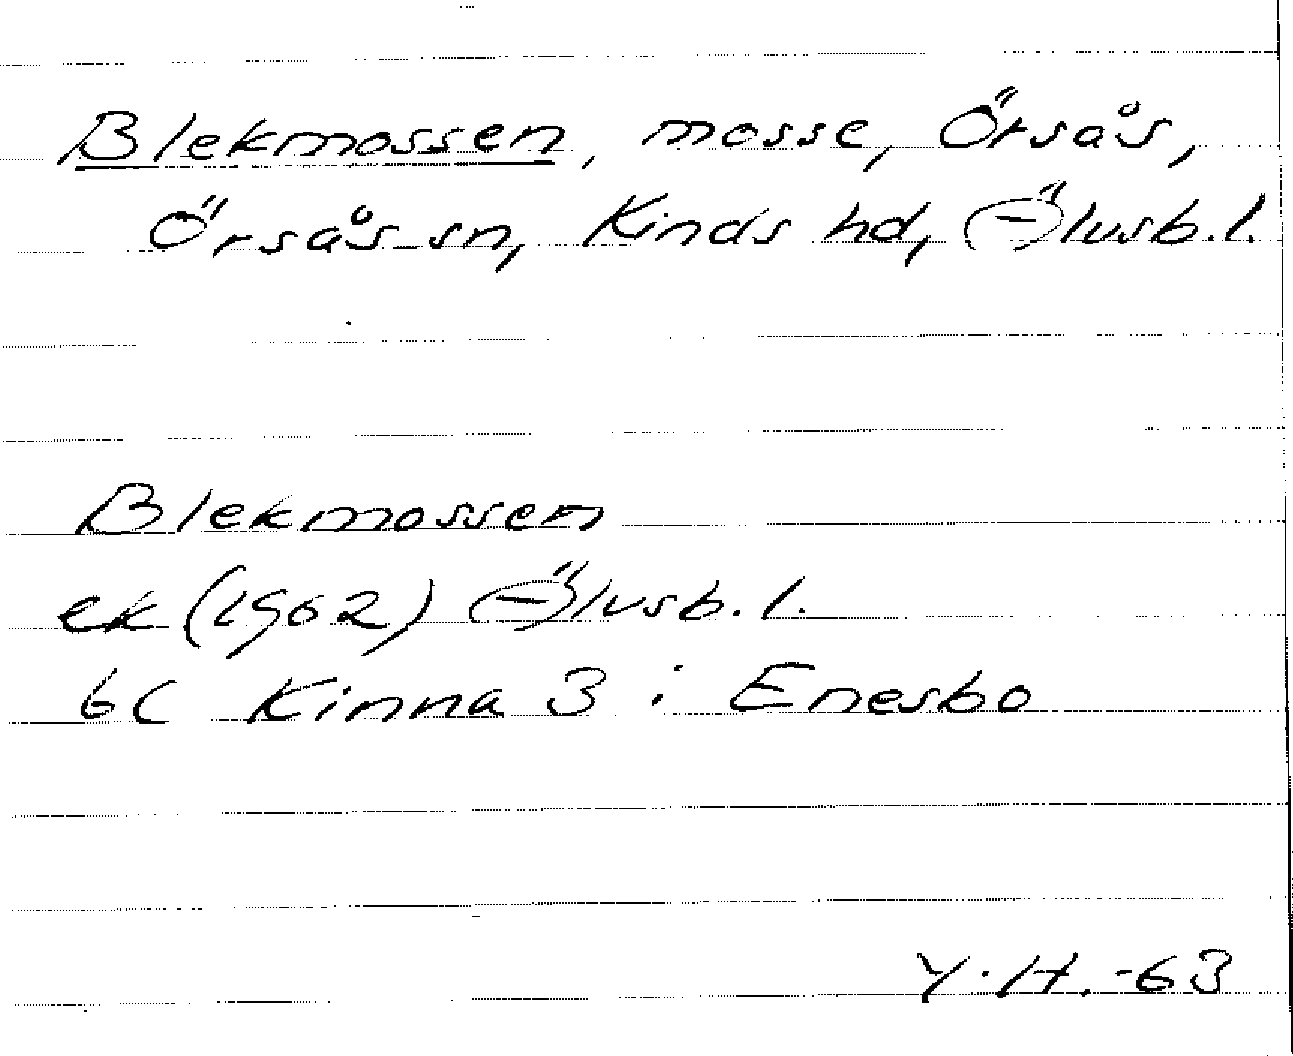 Blekmossen, mosse, Örsås,
Örsås sn, Kinds hd, Älvsb. l.
Blekmossen
ek (1962) Älvsb. l.
6C Kinna 3 i Enesbo
Y. H. -63